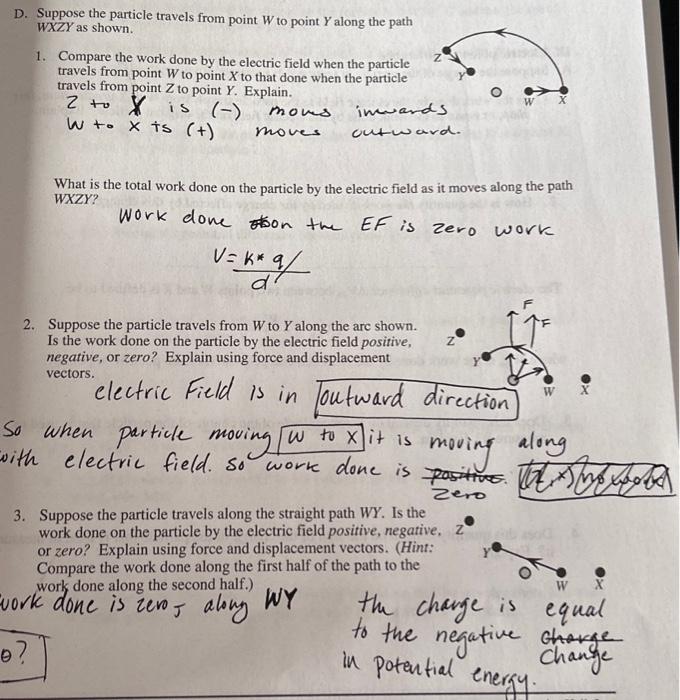 D. Suppose the particle travels from point W to point Y along the path
WXZY as shown.
1. Compare the work done by the electric field when the particle
travels from point W to point X to that done when the particle
travels from point Z to point Y. Explain.
Z to Y is (-) moves inwards
W to X is (+) moves outward.
Z
Y
W
X
What is the total work done on the particle by the electric field as it moves along the path
WXZY?
Work done on the EF is zero work
V = k * q/
d
2. Suppose the particle travels from W to Y along the arc shown.
Is the work done on the particle by the electric field positive,
negative, or zero? Explain using force and displacement
vectors.
F
F
Z
Y
W
X
electric Field is in outward direction
So when particle moving W to X it is moving along
with electric field. so work done is positive.
zero
3. Suppose the particle travels along the straight path WY. Is the
work done on the particle by the electric field positive, negative,
or zero? Explain using force and displacement vectors. (Hint:
Compare the work done along the first half of the path to the
work done along the second half.)
Z
Y
W
X
work done is zero, along WY
the charge is equal
to the negative charge
change
in potential energy.
θ?